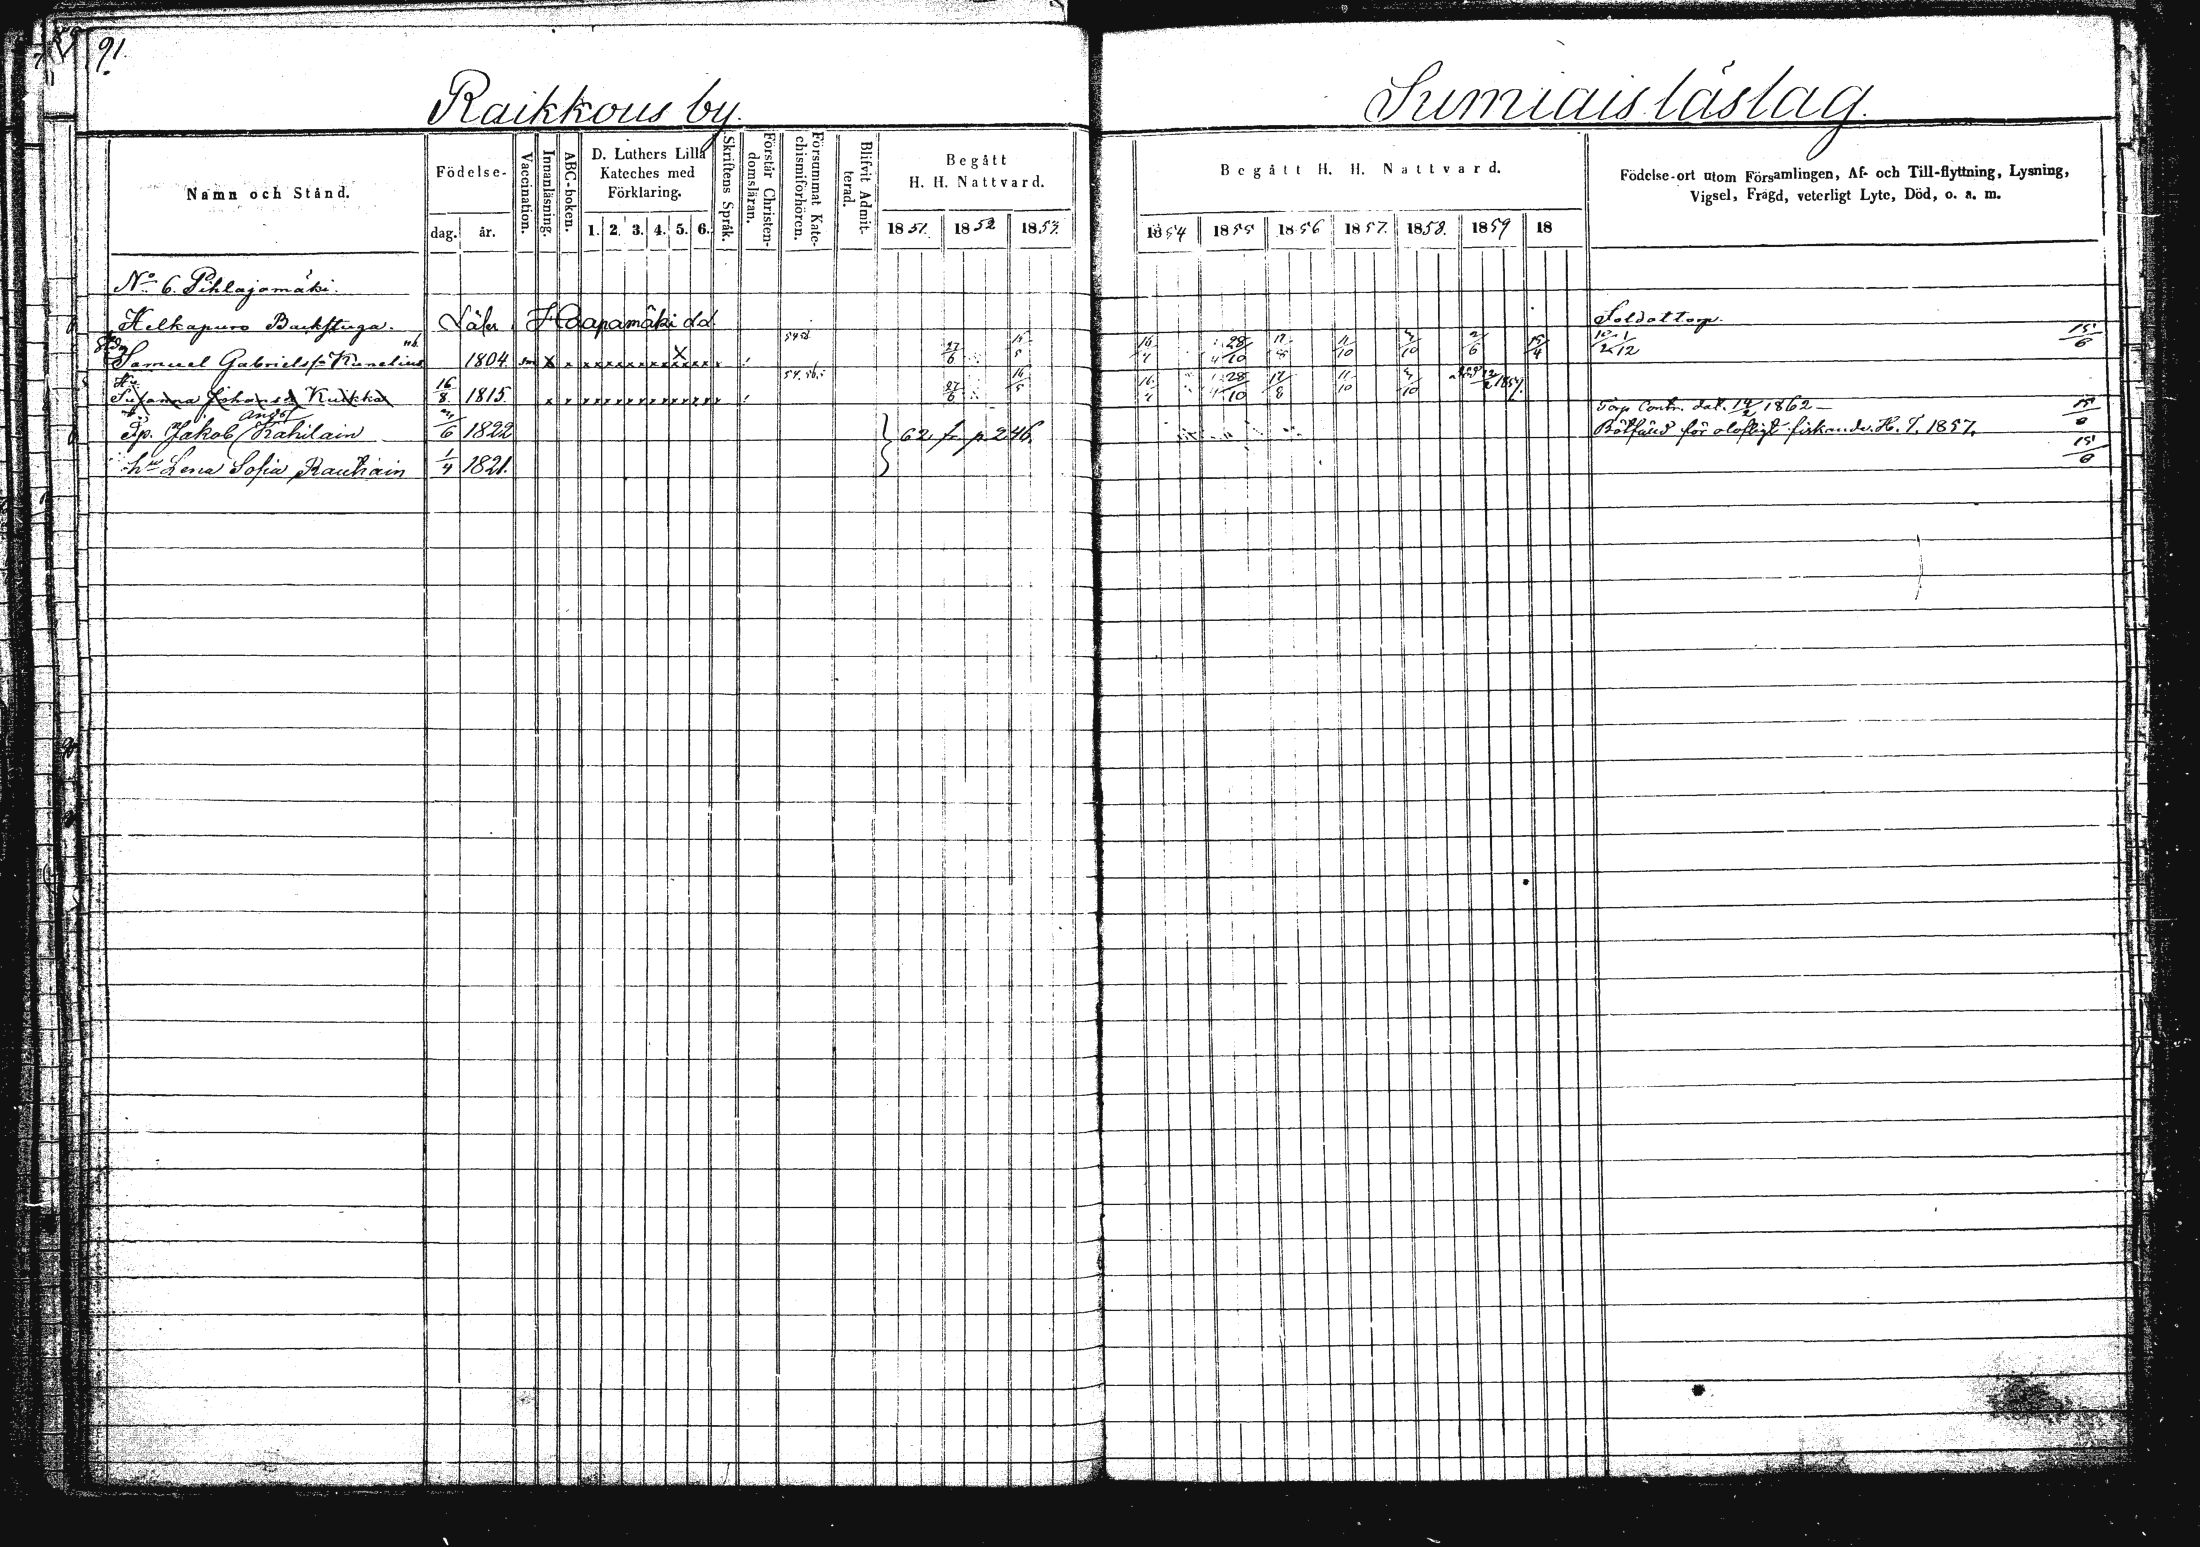 91.
Raikkous by.
Sumiais läslag.
Namn och Stånd.
Födelse-
dag. år.
Vaccination.
Innanläsning.
ABC-boken.
D. Luthers Lilla
Kateches med
Förklaring.
1. 2. 3. 4. 5. 6.
Skriftens Språk.
Förstår Christen-
domsläran.
Försummat Kate-
chismiförhören.
Blifvit Admit-
terad.
Begått
H. H. Nattvard.
1851. 1852 1853.
Begått H. H. Nattvard.
1854 1855 1856 1857. 1858. 1859 18
Födelse-ort utom Församlingen, Af- och Till-flyttning, Lysning,
Vigsel, Frägd, veterligt Lyte, Död, o. a. m.
No 6. Pihlajamäki.
Helkapuro Backstuga. Läser Haapamäki dd. Soldattorp.
Samuel Gabrielss. Kunelius 1804. 54 56 27/6 15/5 16/4 28/10 12/8 11/10 3/10 2/6 15/4 15/6
Hu
Susanna Johansd. Kukka 16/8 1815. 54. 56. 27/6 16/5 16/4 28/10 12/8 11/10 3/10 död 12/2 1859.
Torp. Contr. dat. 14/2 1862
Tp. Jakob Andsf Kahilain /6 1822 62 fr p. 246. Bötfäld för olofligt fiskande. H. T. 1857.
hu Lena Sofia Rautiain 1/4 1821. 15/6